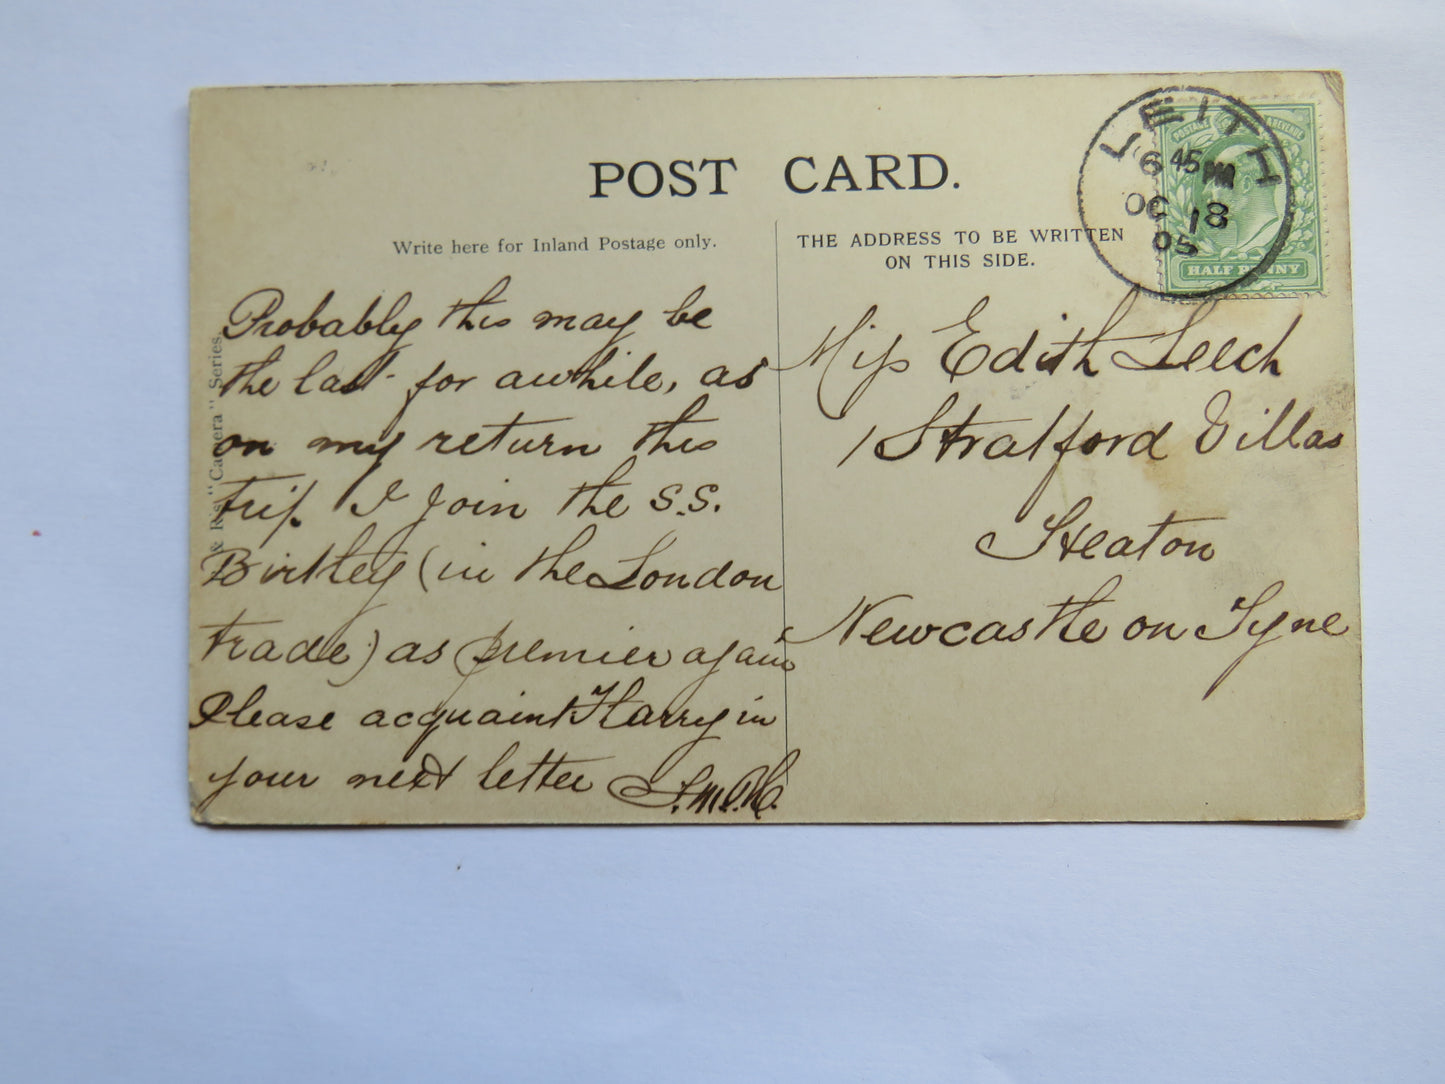 POST CARD.
Write here for Inland Postage only.
THE ADDRESS TO BE WRITTEN
ON THIS SIDE.
LEITH
6 45 PM
OC 18
05
POSTAGE & REVENUE
HALF PENNY
& R's "Camera" Series.
Probably this may be
the last for awhile, as
on my return this
trip. I join the S.S.
Birtley (in the London
trade) as premier again
Please acquaint Harry in
your next letter
Miss Edith Leech
1 Stratford Villas
Heaton
Newcastle on Tyne